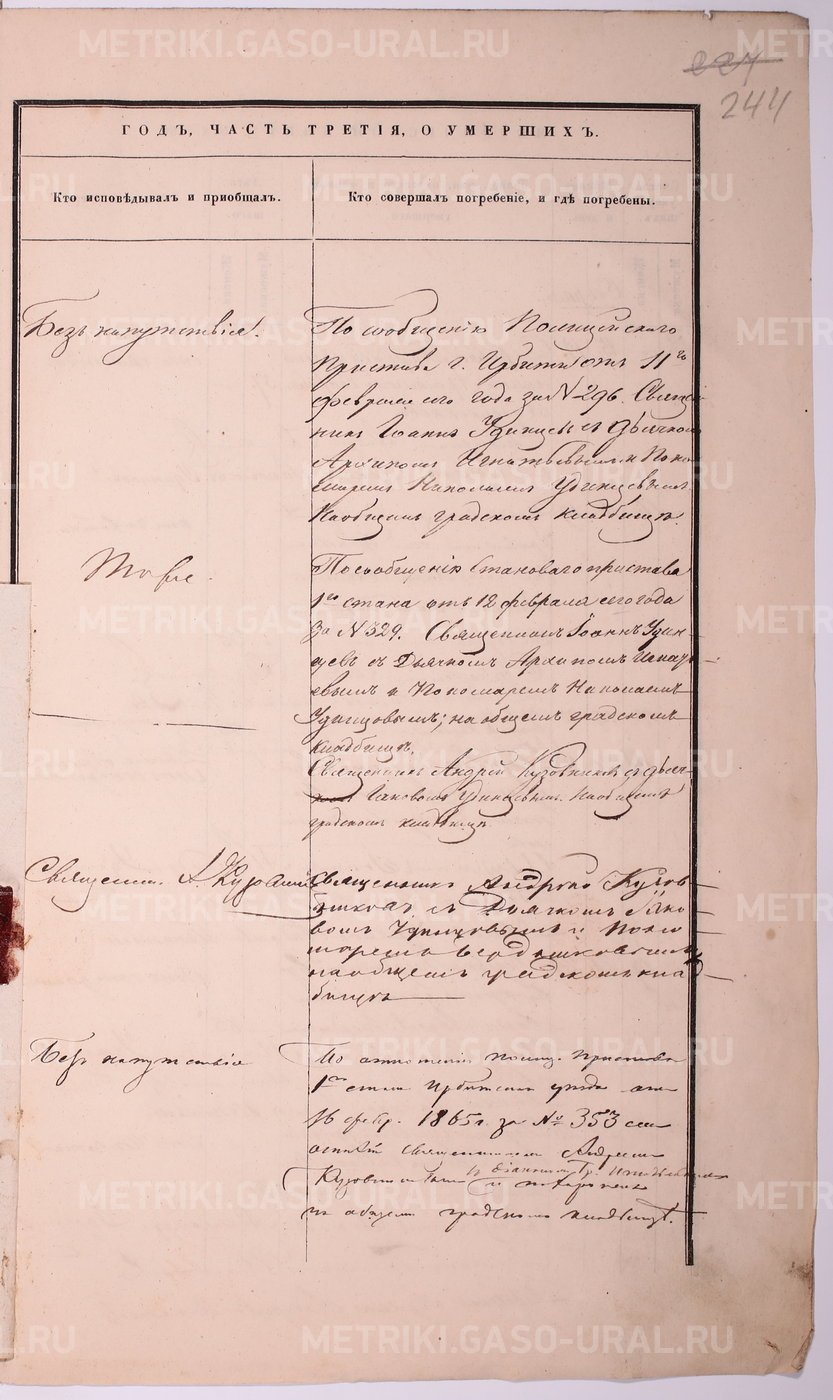 244
ГОДЪ, ЧАСТЬ ТРЕТІЯ, О УМЕРШИХЪ.
Кто исповѣдывалъ и приобщалъ.
Кто совершалъ погребеніе, и гдѣ погребены.
Безъ напутствія.
По сообщенію Полицейскаго
Пристава г. Ирбити отъ 11го
февраля сего года за N 296. Священ
никъ Іоаннъ Удинцевъ съ дьячкомъ
Архипомъ Игнатьевымъ и Поно
маремъ Николаемъ Удинцевымъ
На общемъ градскомъ кладбищѣ.
Тоже.
По сообщенію Становаго пристава
1го стана отъ 12 февраля сего года
за N 329. Священникъ Іоаннъ Удин-
цевъ съ Дьячкомъ Архипомъ Игнать-
евымъ и Пономаремъ Николаемъ
Удинцовымъ; на общемъ градскомъ
кладбищѣ.
Священникъ Андрей Кузовниковъ съ дьяч-
комъ Іаковомъ Удинцевымъ. На общемъ
градскомъ кладбищѣ
Священник. А. Кузовник
Священникъ Андрей Кузов-
никовъ съ Дьячкомъ Іако-
вомъ Удинцовымъ и Поно
маремъ
на общемъ градскомъ клад-
бищѣ
Безъ напутствія
По отношенію полиц. Пристава
1го стана Ирбитскаго уѣзда отъ
16 февр. 1865 г. за № 353
священникомъ Андреемъ
Кузовниковымъ
и похороненъ
на общемъ градскомъ кладбищѣ.
METRIKI.GASO-URAL.RU